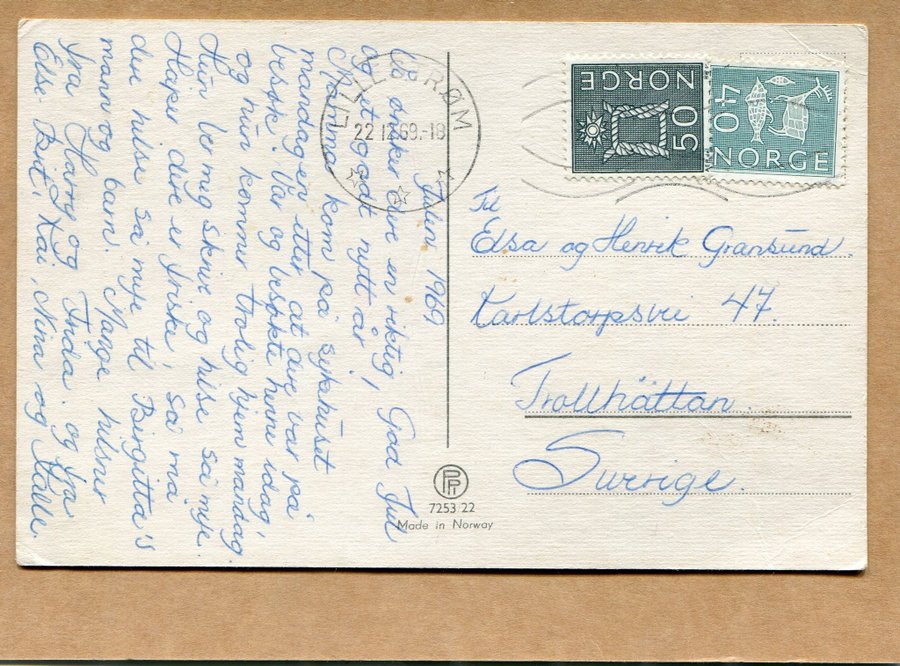 Julen 1969
Vi ønsker dere en riktig, God Jul
og et godt nytt år.
Mamma kom på sykehuset
mandagen etter at dere var på
besøk. Var og besøkte henne idag,
og hun kommer trolig hjem mandag.
Hun ber meg skrive og hilse så mye.
Håper dere er friske, så må
du hilse så mye til Birgitta's
mann og barn. Mange hilsner
fra Harry og Frida. og fra
Else. Brit, Kai, Nina og
LILLESTRØM
22 12 69.-18
NORGE
50
NORGE
40
Til
Elsa og Henrik Gransund.
Karlstorpsvei 47.
Trollhättan.
Sverige.
PP
7253/22
Made in Norway